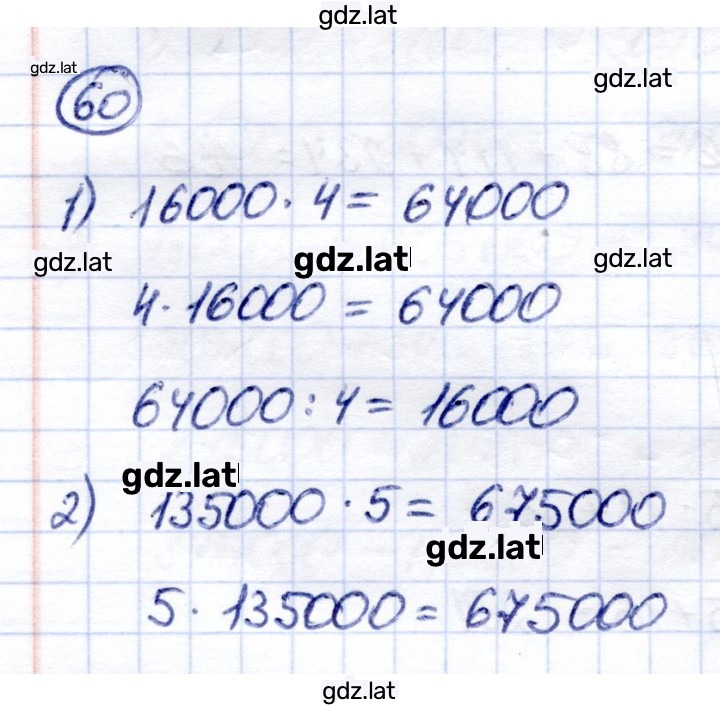 gdz.lat
gdz.lat
gdz.lat
60
1) 16000 · 4 = 64000
gdz.lat gdz.lat gdz.lat
4 · 16000 = 64000
64000 : 4 = 16000
gdz.lat
2) 135000 · 5 = 675000
gdz.lat
5 · 135000 = 675000
gdz.lat